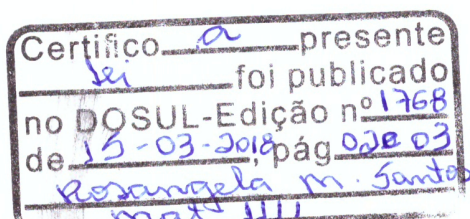 Certifico a presente
lei foi publicado
no DOSUL-Edição nº 1768
de 15-03-2018, pág 02 e 03
Rosangela M. Santos